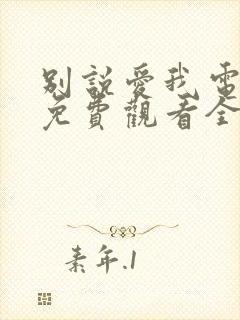 別說愛我 電
免費觀看全
素年.1